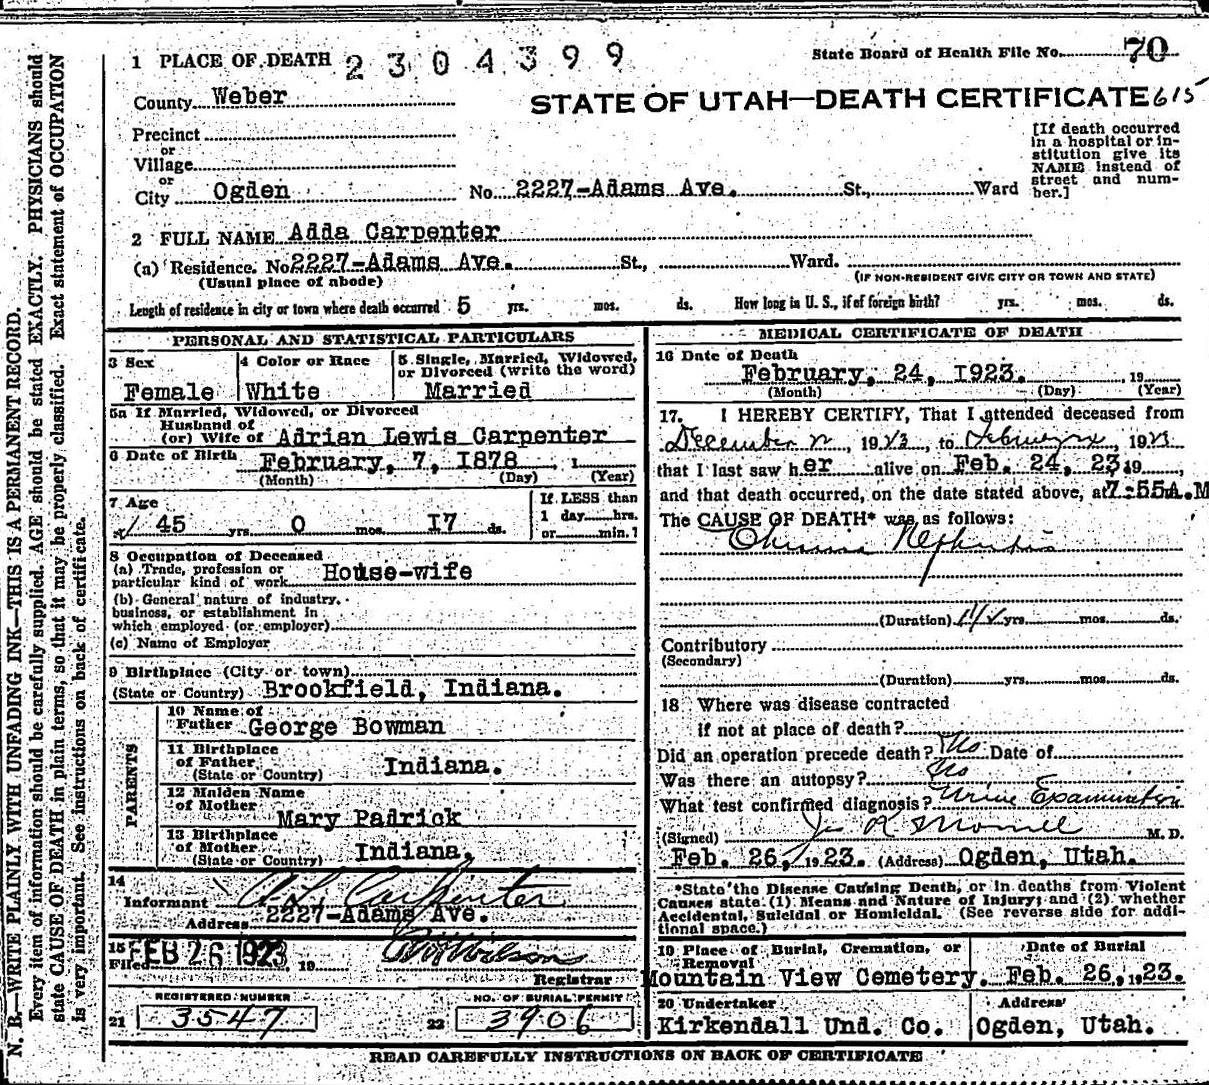 1 PLACE OF DEATH 2304399
State Board of Health File No. 70
County Weber
STATE OF UTAH—DEATH CERTIFICATE 615
Precinct
or
Village
or
City Ogden No. 2227-Adams Ave. St., Ward
[If death occurred
in a hospital or in-
stitution give its
NAME instead of
street and num-
ber.]
2 FULL NAME Adda Carpenter
(a) Residence. No. 2227-Adams Ave. St., Ward.
(Usual place of abode) (IF NON-RESIDENT GIVE CITY OR TOWN AND STATE)
Length of residence in city or town where death occurred 5 yrs. mos. ds. How long in U. S., if of foreign birth? yrs. mos. ds.
PERSONAL AND STATISTICAL PARTICULARS
3 Sex
Female
4 Color or Race
White
5 Single, Married, Widowed,
or Divorced (write the word)
Married
5a If Married, Widowed, or Divorced
Husband of
(or) Wife of Adrian Lewis Carpenter
6 Date of Birth February, 7, 1878 , 1
(Month) (Day) (Year)
7 Age
45 yrs. 0 mos. 17 ds.
If LESS than
1 day hrs.
or min.?
8 Occupation of Deceased
(a) Trade, profession or
particular kind of work House-wife
(b) General nature of industry,
business, or establishment in
which employed (or employer)
(c) Name of Employer
9 Birthplace (City or town)
(State or Country) Brookfield, Indiana.
PARENTS
10 Name of
Father George Bowman
11 Birthplace
of Father
(State or Country) Indiana.
12 Maiden Name
of Mother
Mary Padrick
13 Birthplace
of Mother
(State or Country) Indiana,
14
Informant A. L. Carpenter
Address 2227-Adams Ave.
15
Filed FEB 26 1923 19
Wilson
Registrar
REGISTERED NUMBER
21 3547
NO. OF BURIAL PERMIT
22 3906
MEDICAL CERTIFICATE OF DEATH
16 Date of Death
February, 24, 1923. , 19
(Month) (Day) (Year)
17. I HEREBY CERTIFY, That I attended deceased from
December , 19 , to February , 1923
that I last saw her alive on Feb. 24, 23 19 ,
and that death occurred, on the date stated above, at 7:55A.M
The CAUSE OF DEATH* was as follows:
Chronic Nephritis
(Duration) yrs. mos. ds.
Contributory
(Secondary)
(Duration) yrs. mos. ds.
18 Where was disease contracted
if not at place of death?
Did an operation precede death? No Date of
Was there an autopsy? No
What test confirmed diagnosis? Urine Examination
(Signed) R Morrell M. D.
Feb. 26, 1923. (Address) Ogden, Utah.
*State the Disease Causing Death, or in deaths from Violent
Causes state (1) Means and Nature of Injury; and (2) whether
Accidental, Suicidal or Homicidal. (See reverse side for addi-
tional space.)
19 Place of Burial, Cremation, or
Removal
Mountain View Cemetery.
Date of Burial
Feb. 26, 1923.
20 Undertaker
Kirkendall Und. Co.
Address
Ogden, Utah.
READ CAREFULLY INSTRUCTIONS ON BACK OF CERTIFICATE
N. B.—WRITE PLAINLY WITH UNFADING INK—THIS IS A PERMANENT RECORD.
Every item of information should be carefully supplied. AGE should be stated EXACTLY. PHYSICIANS should
state CAUSE OF DEATH in plain terms, so that it may be properly classified. Exact statement of OCCUPATION
is very important. See instructions on back of certificate.